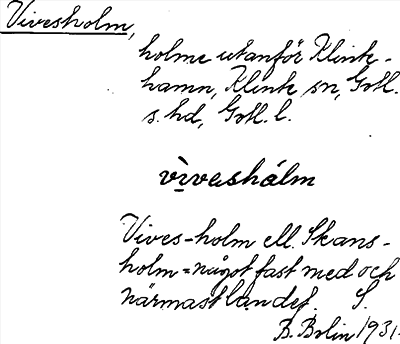 Vivesholm,
holme utanför Klinte-
hamn, Klinte sn, Gotl.
s. hd, Gotl. l.
vìveshálm
Vives-holm ell. Skans-
holm = något fast med och
närmast landet. S.
B. Bolin 1931.